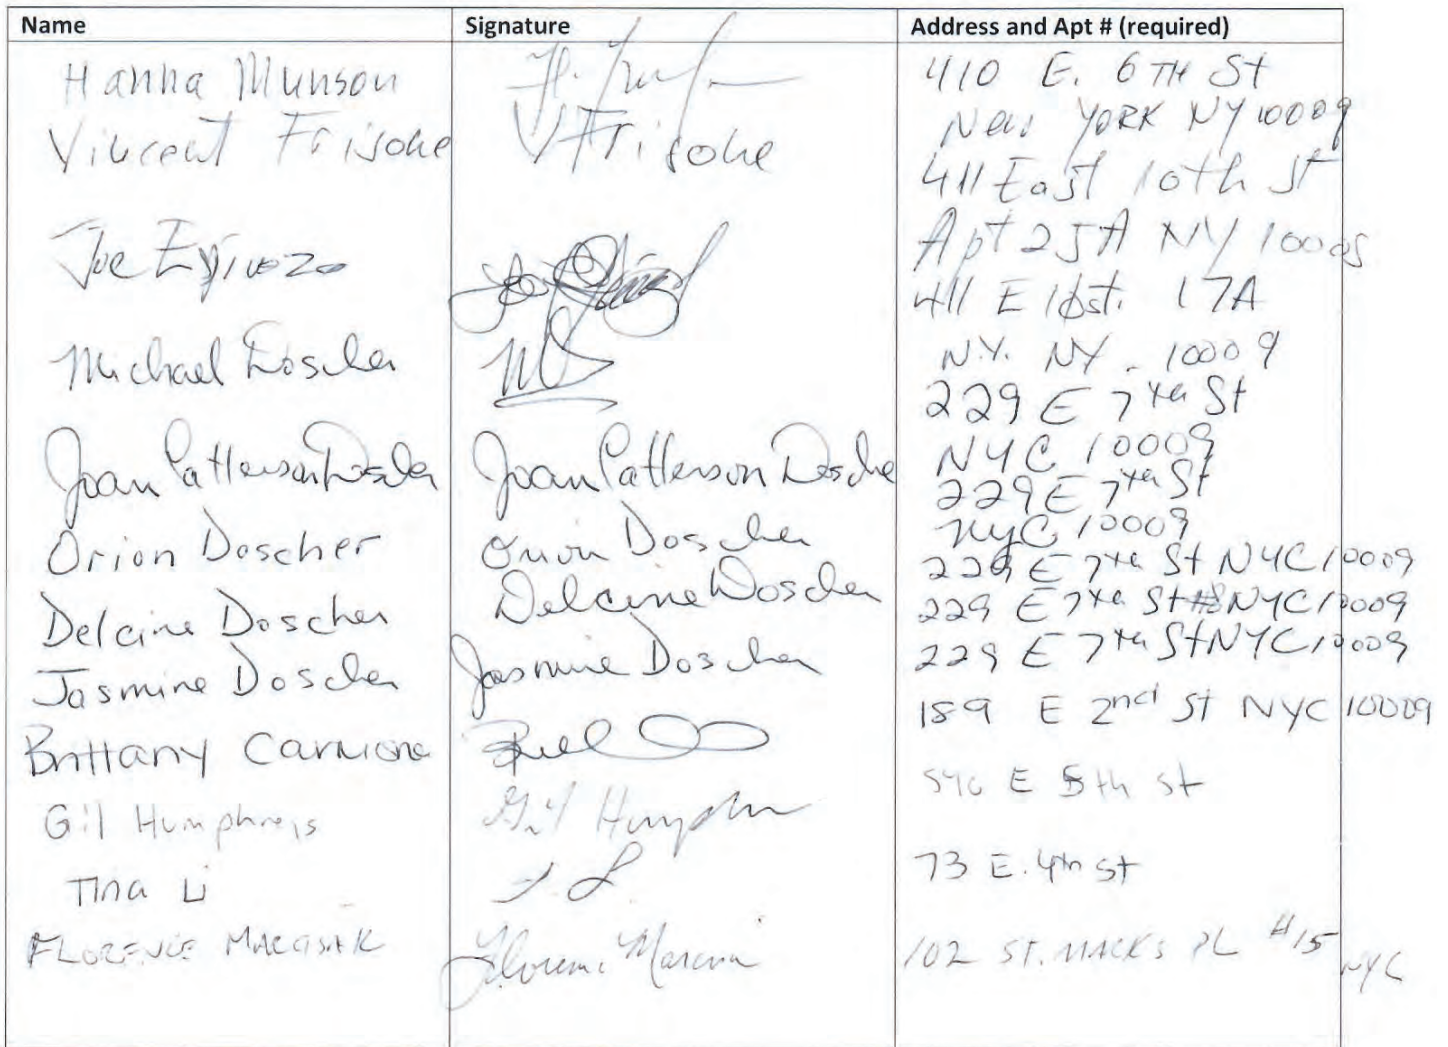 Name Signature Address and Apt # (required)
Hanna Munson 410 E. 6TH St
New YORK NY 10009
Vincent Frisone VFrisone 411 East 10th St
Apt 25A NY 10009
Joe 411 E 10st. 17A
N.Y. NY. 10009
Michael Doscher 229 E 7th St
NYC 10009
Joan Patterson Doscher Joan Patterson Doscher 229 E 7th St
NYC 10009
Orion Doscher Orion Doscher 229 E 7th St NYC 10009
Delcine Doscher Delcine Doscher 229 E 7th St #8 NYC 10009
Jasmine Doscher Jasmine Doscher 229 E 7th St NYC 10009
Brittany Carmona 189 E 2nd St NYC 10009
Gil Humphreys Gil 540 E 5th St
Tina Li T L 73 E. 4th St
FLORENCE 102 ST. MARKS PL #15 NYC